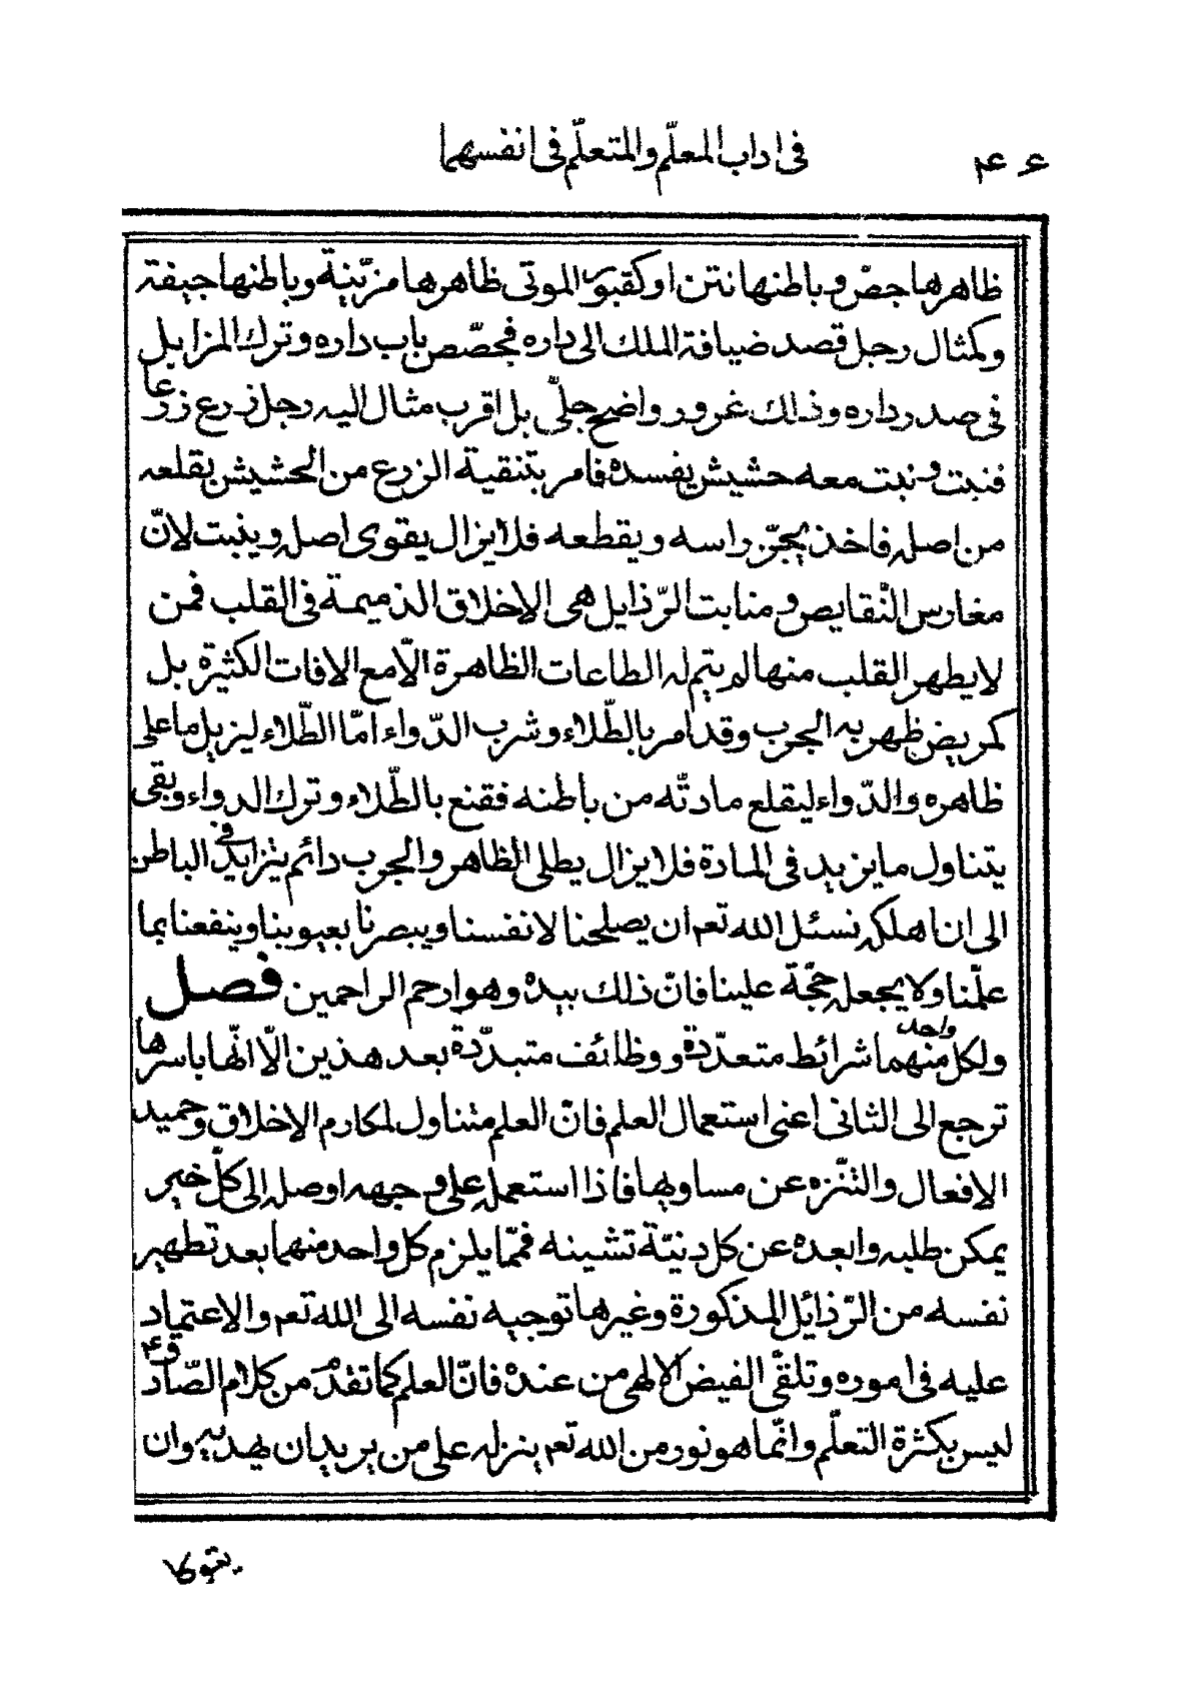 ۴۶ فى اداب المعلّم والمتعلّم فى انفسهما
ظاهرها جصّ وباطنها نتن او كقبور الموتى ظاهرها مزيّنة وباطنها جيفة
وكمثال رجل قصد ضيافة الملك الى داره فجصّص باب داره وترك المزابل
فى صدر داره وذلك غرور واضح جلىّ بل اقرب مثال اليه رجل زرع زرعا
فنبت ونبت معه حشيش يفسده فامر بتنقية الزرع من الحشيش بقلعه
من اصله فاخذ يجزّ راسه ويقطعه فلا يزال يقوى اصله وينبت لانّ
مغارس النّقايص ومنابت الرّذايل هى الاخلاق الذميمة فى القلب فمن
لا يطهر القلب منها لم يتم له الطاعات الظاهرة الّا مع الافات الكثيرة بل
كمريض ظهر به الجرب وقد امر بالطّلاء وشرب الدّواء امّا الطّلاء ليزيل ما على
ظاهره والدّواء ليقلع مادتّه من باطنه فقنع بالطّلاء وترك الدواء وبقى
يتناول ما يزيد فى المادة فلا يزال يطلى الظاهر والجرب دائم يتزايد فى الباطن
الى ان اهلكه نسئل الله تعم ان يصلحنا لانفسنا ويبصرنا بعيوبنا وينفعنا بما
علّمنا ولا يجعله حجّة علينا فانّ ذلك بيده وهو ارحم الراحمين فصل
ولكلّ واحد منهما شرائط متعدّدة ووظائف متبدّدة بعد هذين الّا انّها باسرها
ترجع الى الثانى اعنى استعمال العلم فانّ العلم متناول لمكارم الاخلاق وحميد
الافعال والتنّزه عن مساويها فاذا استعمله على وجهه اوصله الى كلّ خير
يمكن طلبه وابعده عن كل دنيّة تشينه فممّا يلزم كل واحد منهما بعد تطهير
نفسه من الرّذائل المذكورة وغيرها توجيه نفسه الى الله تعم والاعتماد
عليه فى اموره وتلقّى الفيض الالهى من عنده فانّ العلم كما تقدّم من كلام الصّادق ع
ليس بكثرة التعلّم وانّما هو نور من الله تعم ينزله على من يريد ان يهديه وان
يتوكل